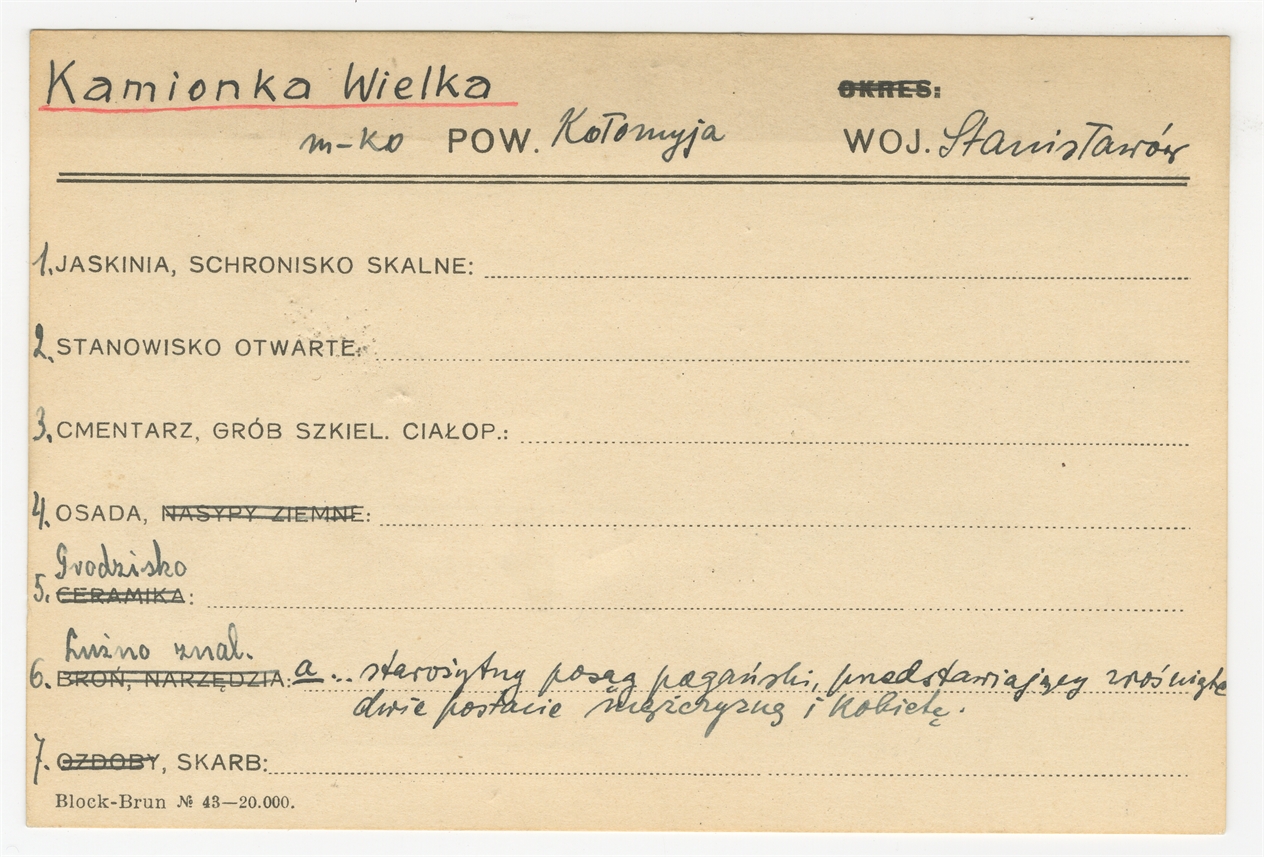 Kamionka Wielka OKRES:
m-ko POW. Kołomyja WOJ. Stanisławów
1. JASKINIA, SCHRONISKO SKALNE:
2. STANOWISKO OTWARTE
3. CMENTARZ, GRÓB SZKIEL. CIAŁOP.:
4. OSADA, NASYPY ZIEMNE:
Grodzisko
5. CERAMIKA:
Luźno znal.
6. BROŃ, NARZĘDZIA: a... starożytny posąg pogański, przedstawiający zrośnięte
dwie postacie mężczyznę i kobietę.
7. OZDOBY, SKARB:
Block-Brun № 43—20.000.